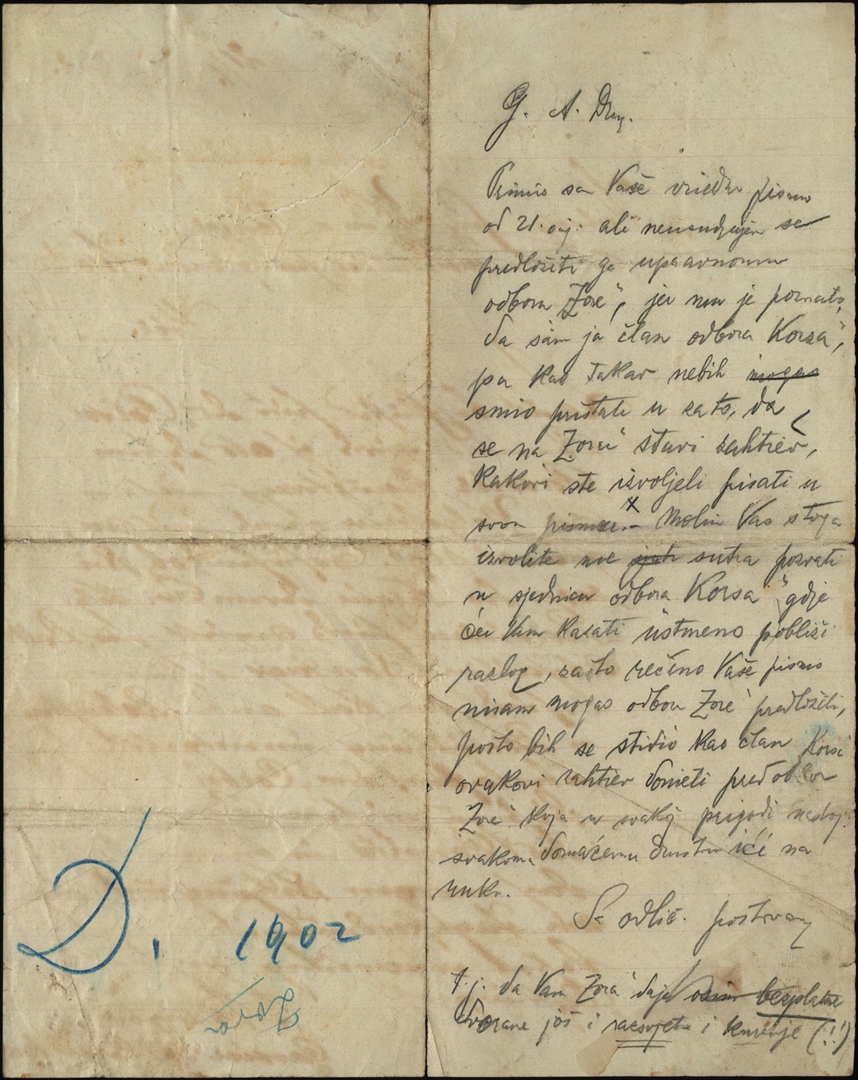 G. A. Drag.
Primio sam Vaše vriedno pismo
od 21. ov. ali neusudjujem se
predložiti ga upravnomu
odboru "Zore", jer mu je poznato,
da sam ja član odbora "Korsa",
pa kao takav nebih mogao
smio pristati u zato, da
se na "Zoru" stavi zahtiev,
kakovi ste izvoljeli pisati u
svom pismu. x Molim Vas stoga
izvolite me sjutr sutra pozvati
u sjednicu odbora "Korsa" gdje
ću Vam kazati ustmeno pobliži
razlog, zašto rečeno Vaše pismo
nisam mogao odboru "Zore" predložiti,
pošto bih se stidio kao član Korsa
ovakovi zahtiev donieti pred odbor
"Zore" koja u svakoj prigodi
svakomu domaćemu družtvu ići na
ruku.
Sa odlič. poštovanj
t. j. da Vam "Zora" daje osim bezplatne
dvorane još i razsvjetu i kurenje (!!)
D. 1902
Zora